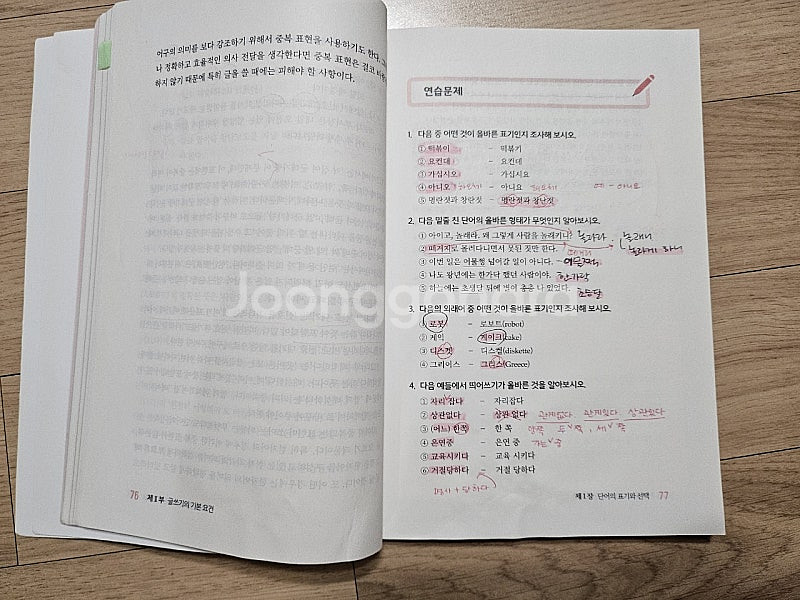 어구의 의미를 보다 강조하기 위해서 중복 표현을 사용하기도 한다. 그
나 정확하고 효율적인 의사 전달을 생각한다면 중복 표현은 결코
하지 않기 때문에 특히 글을 쓸 때에는 피해야 할 사항이다.
76 제Ⅱ부 글쓰기의 기본 요건
연습문제
1. 다음 중 어떤 것이 올바른 표기인지 조사해 보시오.
① 떡볶이 – 떡볶기
② 요컨대 – 요컨데
③ 가십시오 – 가십시요
④ 아니오 – 아니요 예 – 아니요
⑤ 명란젓과 창란젓 – 명란젓과 창난젓
2. 다음 밑줄 친 단어의 올바른 형태가 무엇인지 알아보시오.
① 아이고, 놀래라. 왜 그렇게 사람을 놀래키니? 놀라라 놀래니
② 떼거지로 몰려다니면서 못된 짓만 한다. 놀라게 하니
③ 이번 일은 어물쩡 넘어갈 일이 아니다. 어물쩍
④ 나도 왕년에는 한가닥 했던 사람이야. 한가락
⑤ 하늘에는 초생달 뒤에 별이 총총 나 있었다. 초승달
3. 다음의 외래어 중 어떤 것이 올바른 표기인지 조사해 보시오.
① 로봇 – 로보트(robot)
② 케익 – 케이크(cake)
③ 디스켓 – 디스켙(diskette)
④ 그리이스 – 그리스(Greece)
4. 다음 예들에서 띄어쓰기가 올바른 것을 알아보시오.
① 자리 잡다 – 자리잡다
② 상관없다 – 상관 없다 관계없다 관계있다 상관있다
③ (어느) 한쪽 – 한 쪽 양쪽 두 쪽, 세 쪽
④ 은연중 – 은연 중
⑤ 교육시키다 – 교육 시키다
⑥ 거절당하다 – 거절 당하다
명사 + 당하다
제1장 단어의 표기와 선택 77
Joonggonara